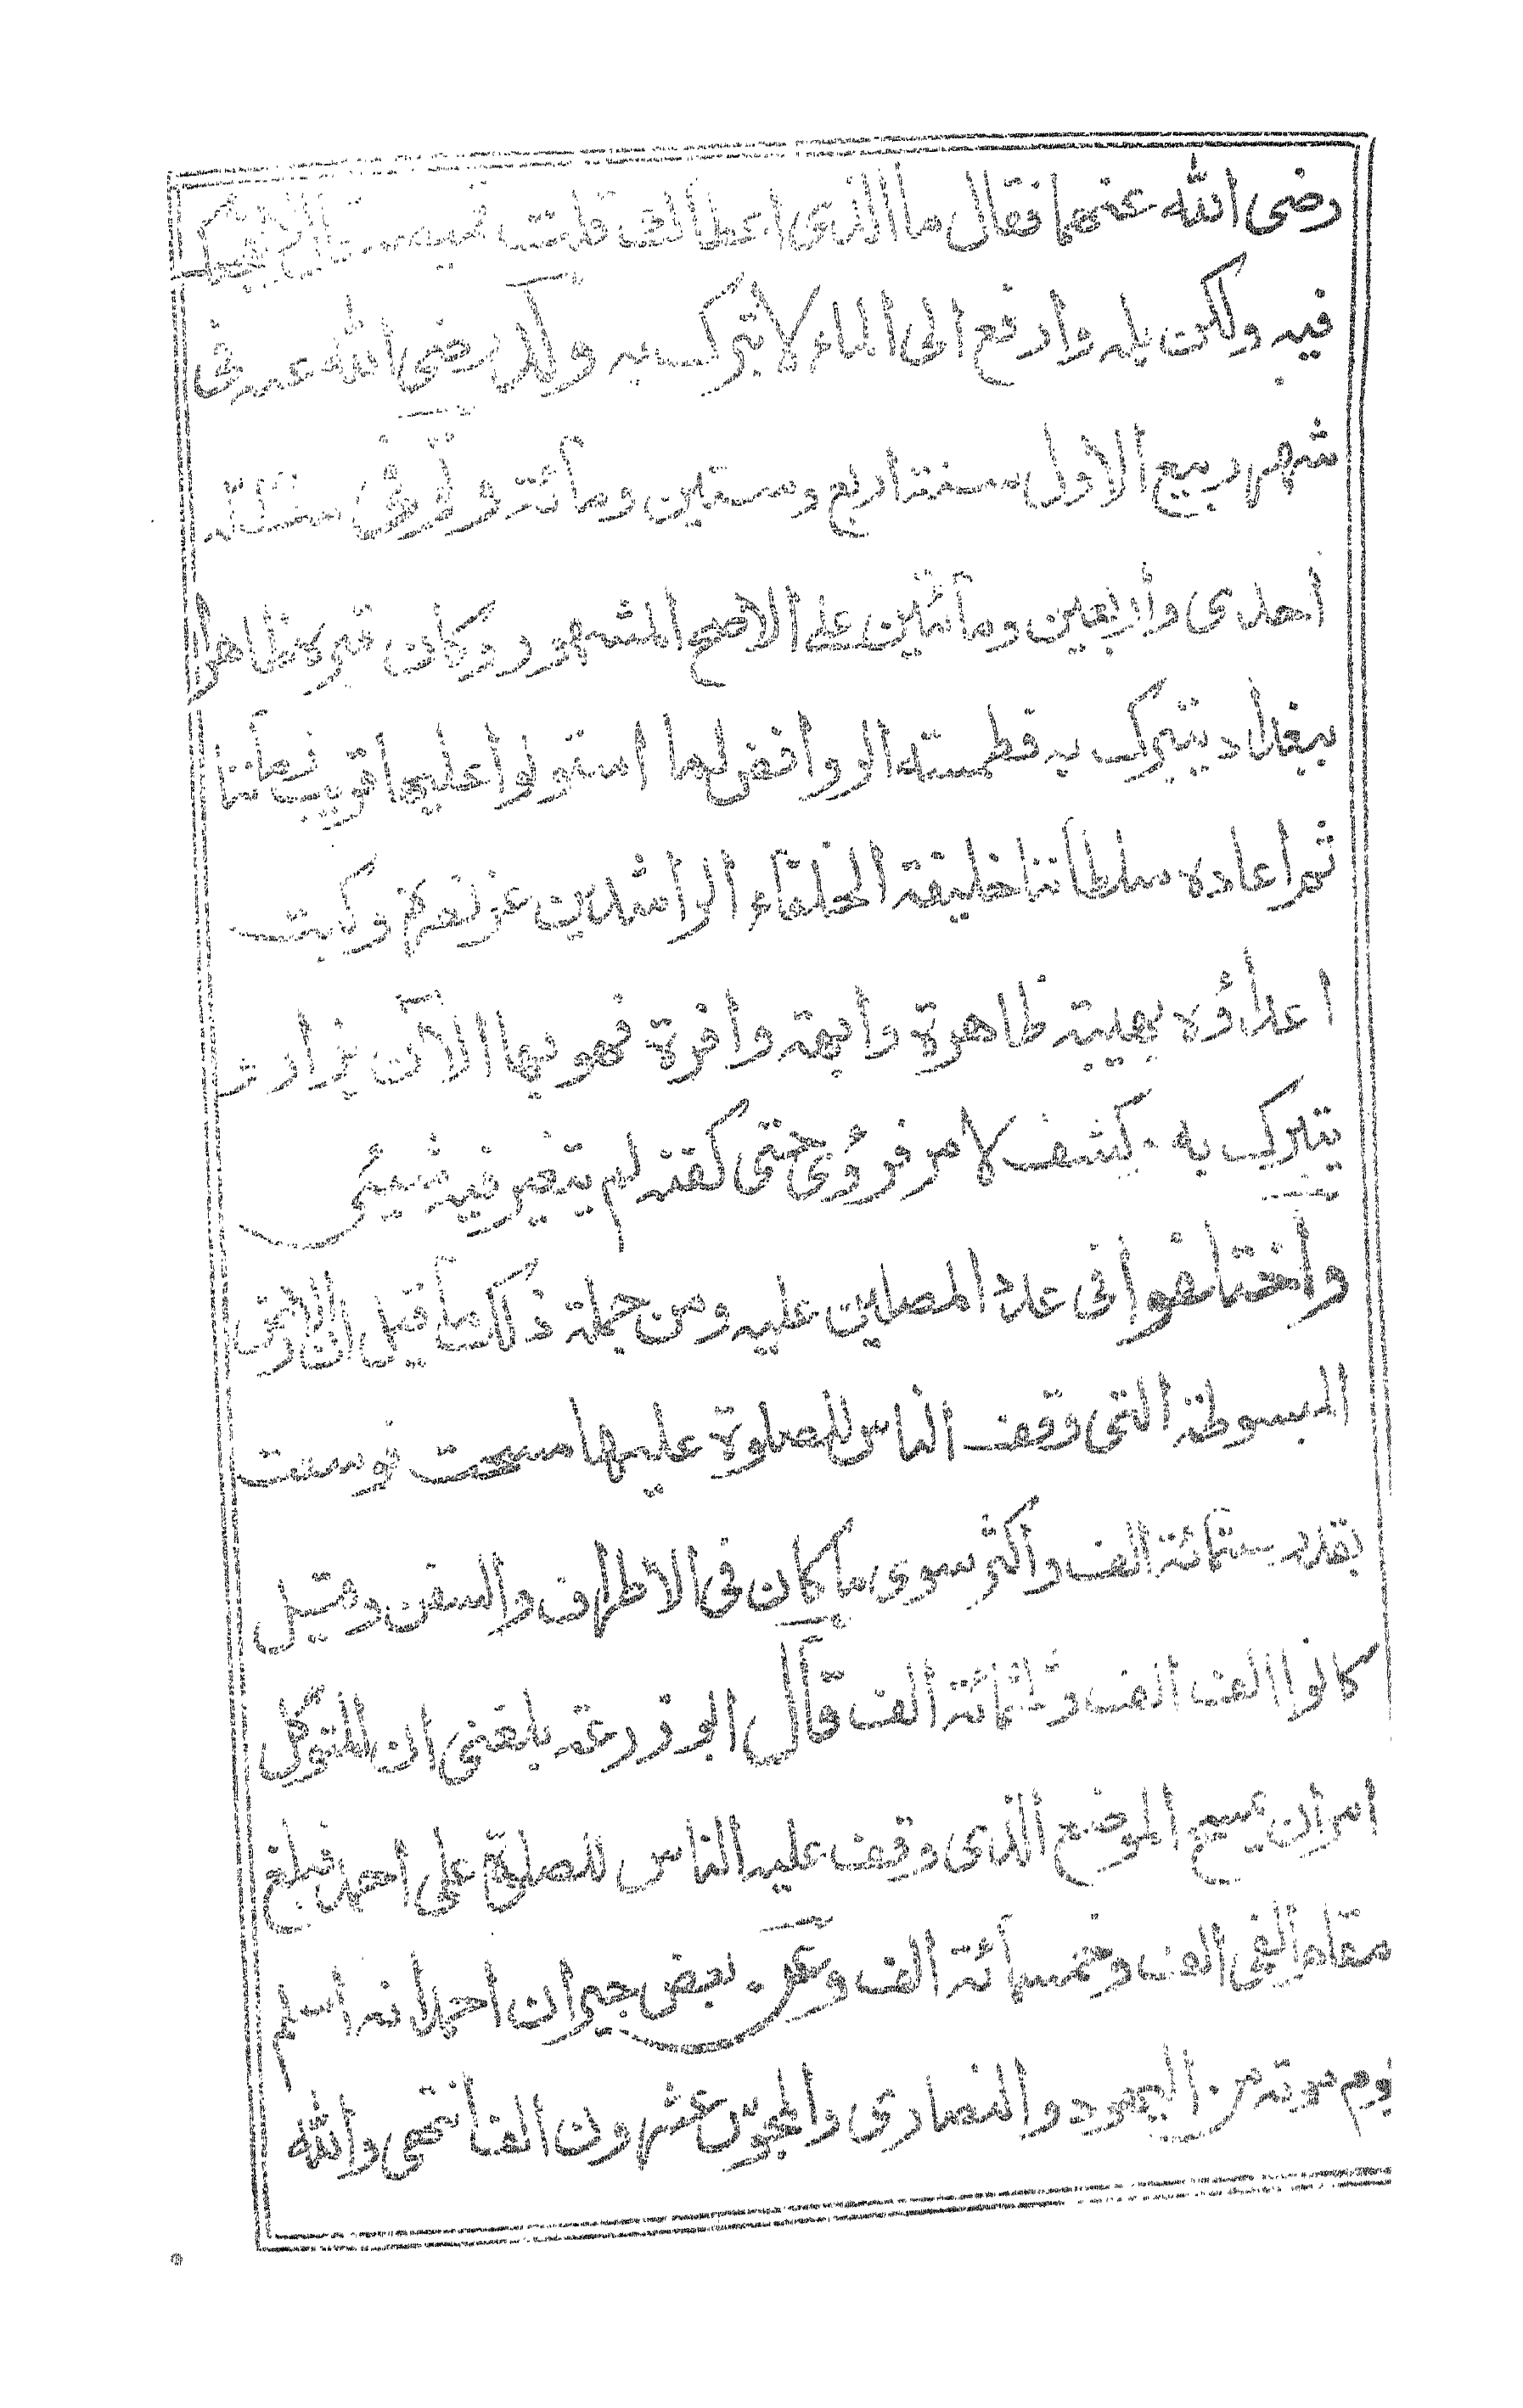 رضى الله عنهما فقال ما الذى اعطاك قلت قميصه قال لا نفجعك
فيه ولكن بله وادفع الى الماء لا تبرك به وولد رضى الله عنه فى
شهر ربيع الاول سنة اربع وستين ومائة وتوفى سنة
احدى وأربعين ومائتين على الاصح المشهور وكان قبره ظاهرا
ببغداد يتبرك به فطمسته الروافض لما استولوا عليها قريب زماننا
ثم اعاده سلطاننا خليفة الخلفاء الراشدين عز نصرهم وكبت
اعداؤه بهيبة ظاهرة وابهة وافرة فهو بها الآن يزار و
يتبرك به . كشف لامر فرؤى حتى كفنه لم يتغير فيه شيئ
واختلفوا فى عدد المصلين عليه ومن جملة ذلك ما قيل ان الارض
المبسوطة التى وقف الناس للصلوة عليها مسحت فوسعت
بقدر ستمائة الف وأكثر سوى ما كان فى الاطراف والسفن وقيل
كانوا الف الف وثلثمائة الف قال ابو زرعة بلغنى ان المتوكل
امر ان يمسح الموضع الذى وقف عليه الناس للصلوة على احمد فبلغ
مقام ألفى الف وخمسمائة الف وعن بعض جيران احمد انه اسلم
يوم موته من اليهود والنصارى والمجوس عشرون الفا انتهى والله